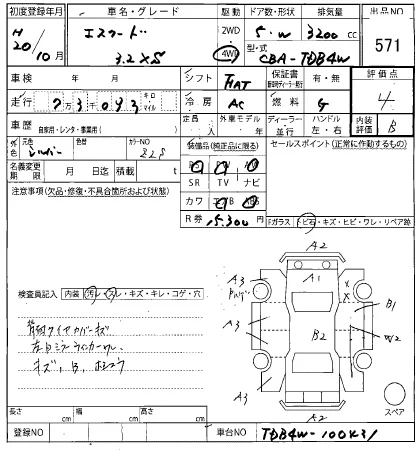 初度登録年月 車名・グレード 駆動 ドア数・形状 排気量 出品NO
H 20 / 10月 エスクード 3.2XS 2WD 4WD 5・W 3200 cc 571
型・式 CBA-TDB4W
車検 年 月 シフト FAT 保証書 有・無 評価点
走行 7万3千093 キロ マイル 冷房 AC 燃料 G 4
車歴 自家用・レンタ・事業用( ) 定員 人 外車モデル 年 ディーラー 並行 ハンドル 左・右 内装評価 B
外色 元色 シルバー 色替 カラーNO 装備品(純正品に限る) セールスポイント(正常に動作するもの)
名義変更期限 月 日迄 積載 t SR TV ナビ
注意事項(欠品・修復・不具合箇所および状態) カワ
R券 Fガラス トビ石・キズ・ヒビ・ワレ・リペア跡
A2
A3 A1
検査員記入 内装 汚レ・スレ・キズ・キレ・コゲ・穴
B1
A3 B2 W2
背面タイヤカバーキズ
左ドアミラーウィンカーワレ
キズ、B、
A3 A3
スペア
A2
長さ cm 幅 cm 高さ cm
登録NO 車台NO TDB4W-100431